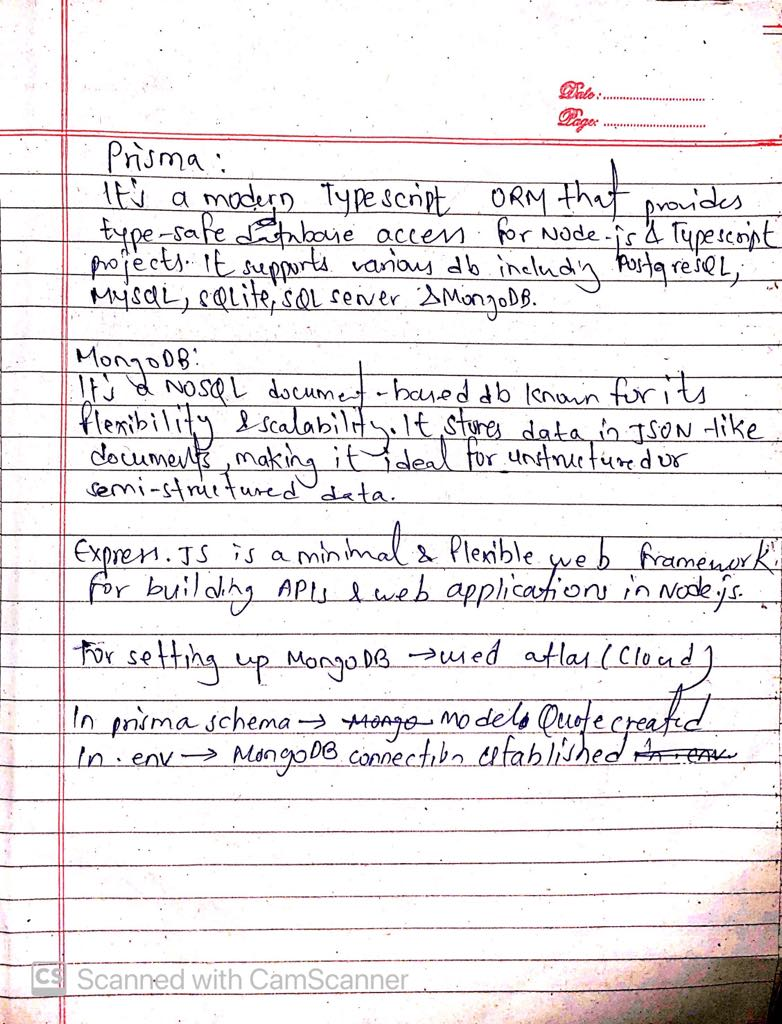 Date:
Page:
Prisma:
It's a modern Typescript ORM that provides
type-safe database access for Node.js & Typescript
projects. It supports various db including PostgreSQL,
MySQL, SQLite, SQL server & MongoDB.
MongoDB:
It's a NOSQL document-based db known for its
flexibility & scalability. It stores data in JSON-like
documents, making it ideal for unstructured or
semi-structured data.
Express.JS is a minimal & flexible web framework
for building APIs & web applications in Node.js.
For setting up MongoDB → used atlas (Cloud)
In prisma schema → Mongo model Quote created
In .env → MongoDB connection established in .env
CS Scanned with CamScanner